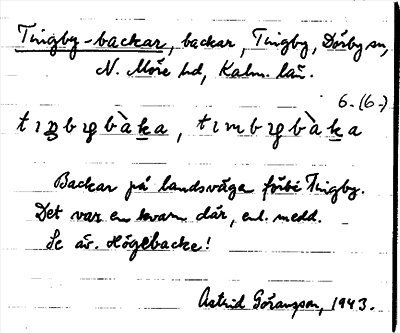 Tingby-backar, backar, Tingby, Dörby sn,
N. Möre hd, Kalm. län.
6. (6.)
tıŋbybàka, tımbybàka
Backar på landsväga förbi Tingby.
Det var en kvarn där, enl. medd.
Se äv. Högebacke!
Astrid Göransson, 1943.